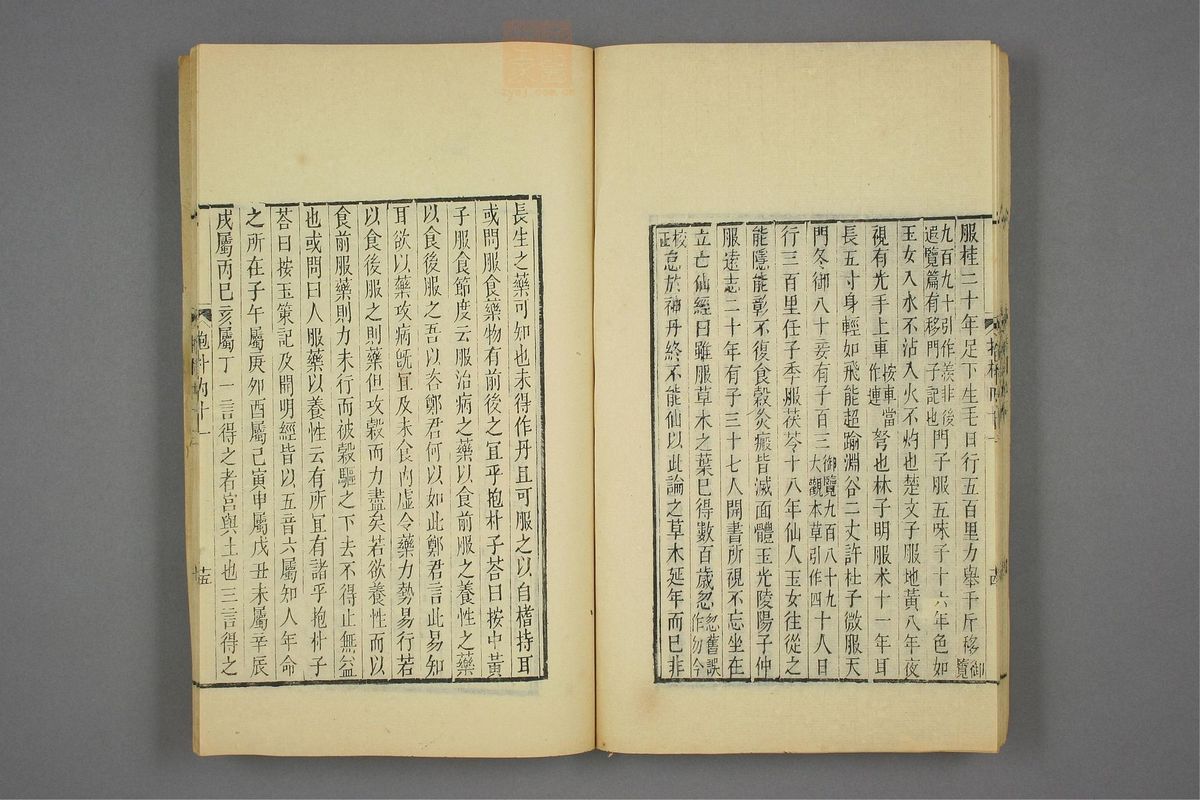 服桂二十年足下生毛日行五百里力舉千斤移御覽
九百九十引作羨非後遐覽篇有移門子記也門子服五味子十六年色如
玉女入水不沾入火不灼也楚文子服地黃八年夜
視有光手上車按車當作連弩也林子明服朮十一年耳
長五寸身輕如飛能超踰淵谷二丈許杜子微服天
門冬御八十妾有子百三御覽九百八十九大觀本草引作四十人日
行三百里任子季服茯苓十八年仙人玉女往從之
能隱能彰不復食穀灸瘢皆滅面體玉光陵陽子仲
服遠志二十年有子三十七人開書所視不忘坐在
立亡仙經曰雖服草木之葉已得數百歲忽忽舊誤作勿今
校正怠於神丹終不能仙以此論之草木延年而已非
長生之藥可知也未得作丹且可服之以自榰持耳
或問服食藥物有前後之宜乎抱朴子荅曰按中黃
子服食節度云服治病之藥以食前服之養性之藥
以食後服之吾以咨鄭君何以如此鄭君言此易知
耳欲以藥攻病旣宜及未食內虛令藥力勢易行若
以食後服之則藥但攻穀而力盡矣若欲養性而以
食前服藥則力未行而被穀驅之下去不得止無益
也或問曰人服藥以養性云有所宜有諸乎抱朴子
荅曰按玉策記及開明經皆以五音六屬知人年命
之所在子午屬庚卯酉屬己寅申屬戊丑未屬辛辰
戌屬丙巳亥屬丁一言得之者宮與土也三言得之
抱朴內十一